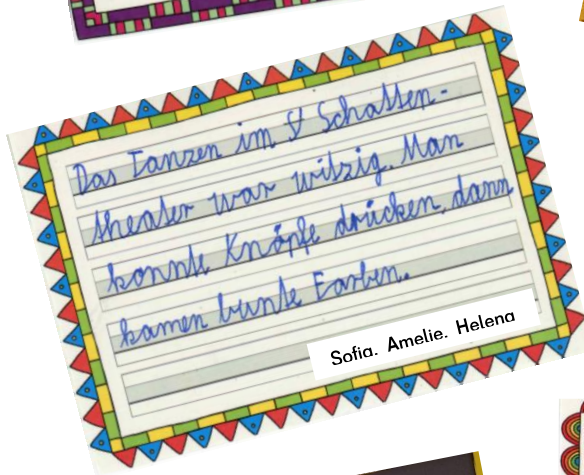 Das Tanzen im Schatten-
theater war witzig. Man
konnte Knöpfe drücken, dann
kamen bunte Farben.
Sofia. Amelie. Helena